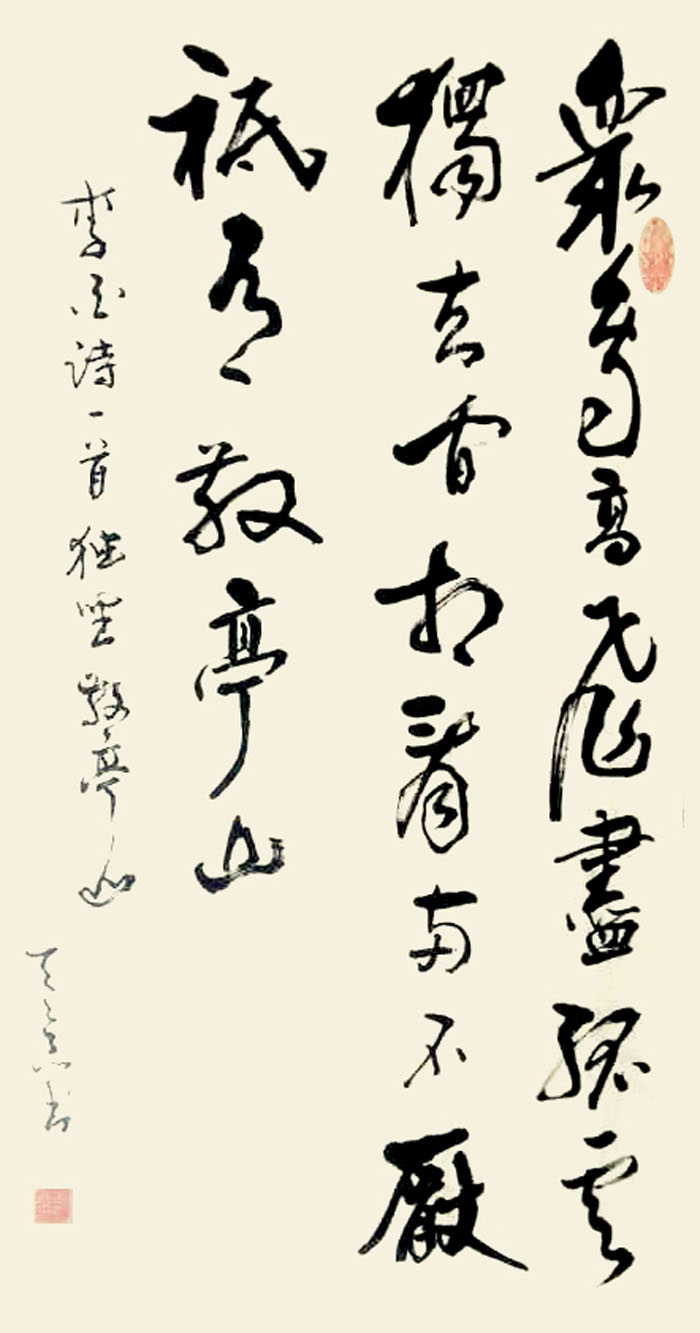 眾鳥高飛盡孤雲
獨去閒相看兩不厭
祗有敬亭山
李白詩一首獨坐敬亭山
書